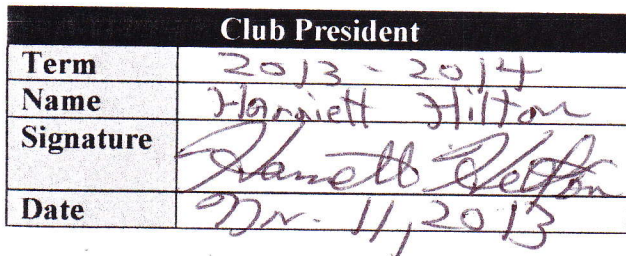 Club President
Term 2013 - 2014
Name Harriett Hilton
Signature Harriett Hilton
Date Nov. 11, 2013